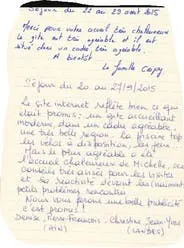 Séjour du 22 au 29 août 2015
Merci pour votre accueil bien chaleureux
Le gîte est très agréable et il est
situé dans un cadre très agréable.
A bientôt
La famille
Séjour du 20 au 27/9/2015
Le site internet reflète bien ce qui
était promis; un gîte accueillant
moderne dans un cadre agréable
une très belle région. La piscine top
les vélos à disposition, les jeux
Mais le plus agréable a été
l'accueil chaleureux de Michelle, ses
conseils très avisés pour les visites
et sa réactivité devant les
petits problèmes rencontrés
Nous vous ferons une belle publicité
c'est promis!
Denise Pierre-François - Christine Jean-Yves
(AIN) (LANDES)